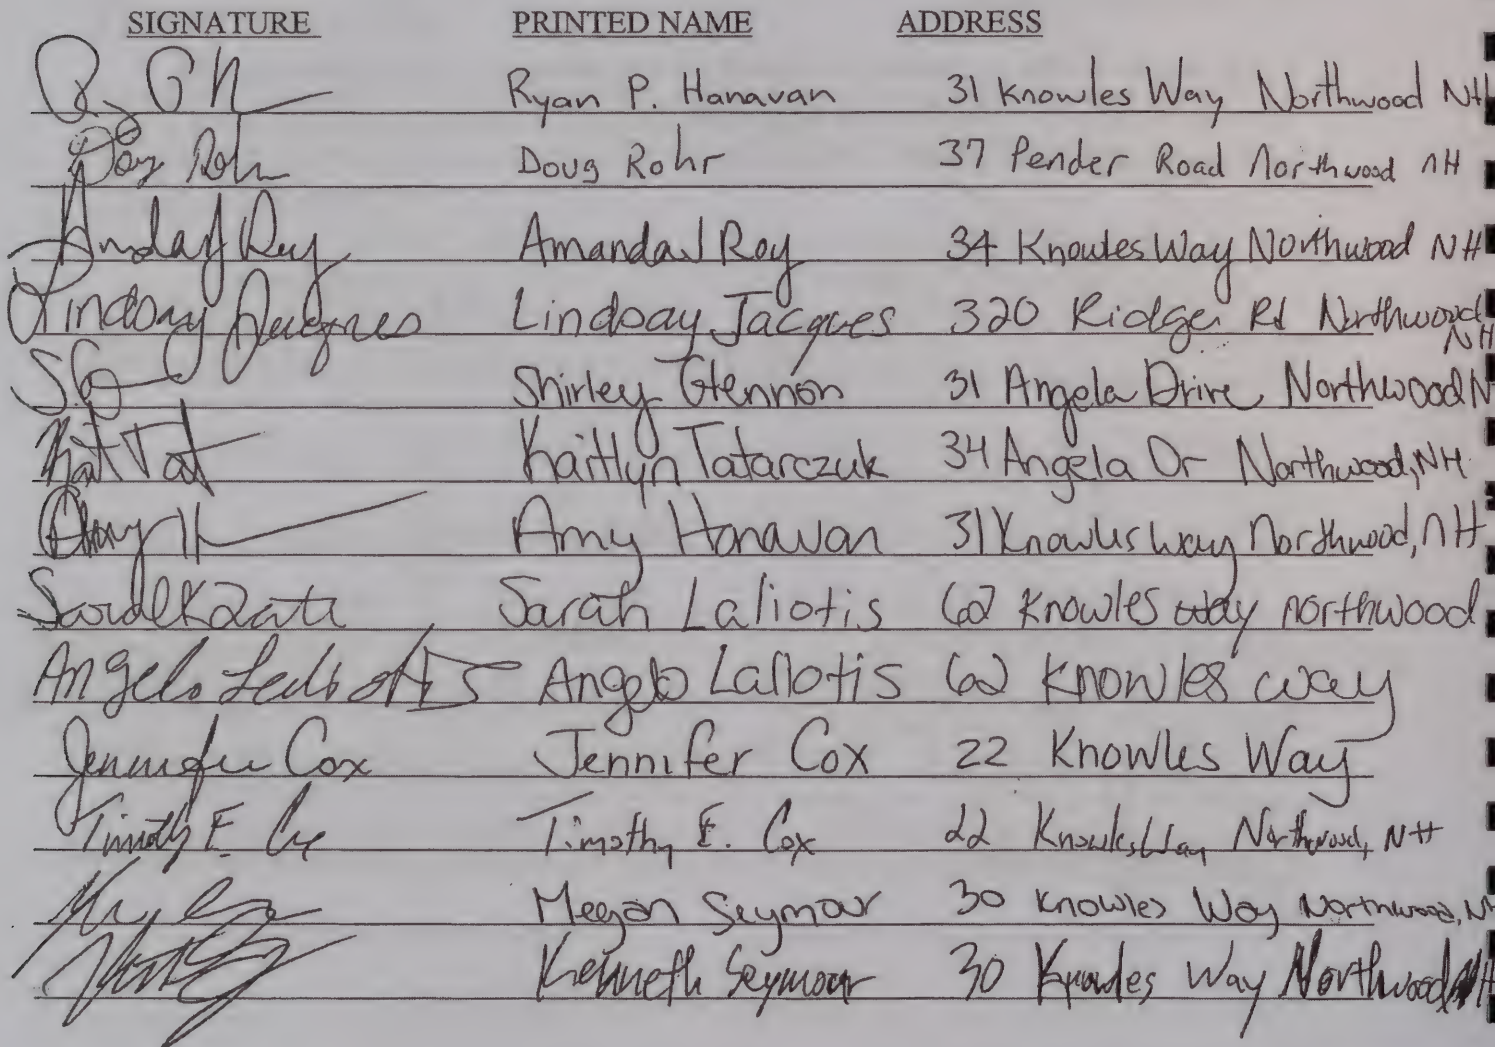 SIGNATURE PRINTED NAME ADDRESS
Ryan P. Hanavan 31 Knowles Way Northwood NH
Doug Rohr Doug Rohr 37 Pender Road Northwood NH
Amanda J Roy 34 Knowles Way Northwood NH
Lindsay Jacques Lindsay Jacques 320 Ridge Rd Northwood
NH
SG Shirley Glennon 31 Angela Drive Northwood N
Kat Tat Kaitlyn Tatarczuk 34 Angela Dr Northwood, NH
Amy H Amy Hanavan 31 Knowles Way Northwood, NH
Sarah Laliotis 62 Knowles way northwood
Angelo Laliotis Angelo Laliotis 62 Knowles way
Jennifer Cox Jennifer Cox 22 Knowles Way
Timothy E. Cox Timothy E. Cox 22 Knowles Way Northwood, NH
Megan Seymour 30 Knowles Way Northwood, N
Kenneth Seymour 30 Knowles Way Northwood NH